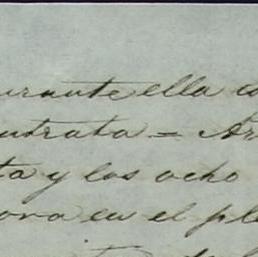 durante ella co
ntrata = Ar
ta y los ocho
ora en el pl